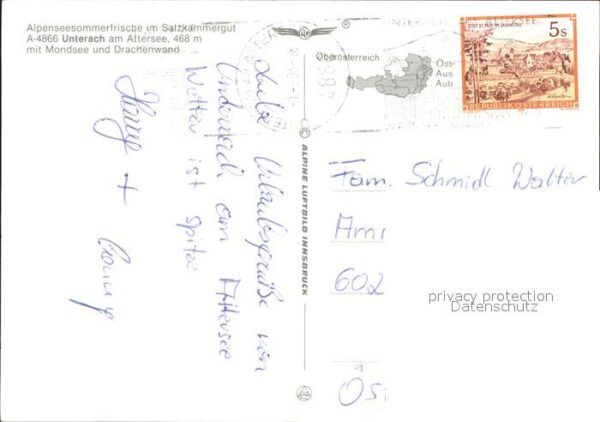 Alpenseesommerfrische im Salzkammergut
A-4866 Unterach am Attersee, 468 m
mit Mondsee und Drachenwand
Oberösterreich
5s
REPUBLIK ÖSTERREICH
© ALPINE LUFTBILD INNSBRUCK
Liebe Urlaubsgrüße von
Unterach am Attersee
Wetter ist spitze
+ Conny
Fam. Schmidl Walter
602
privacy protection
Datenschutz